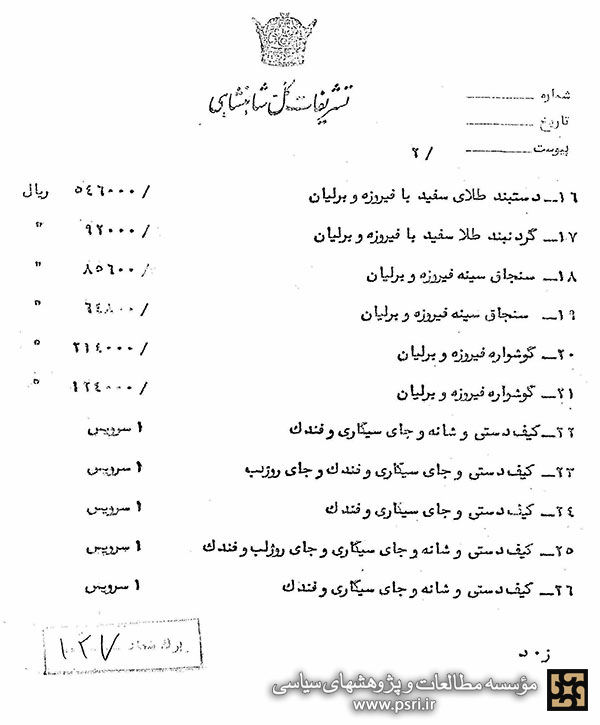 تشریفات کل شاهنشاهی
شماره
تاریخ
پیوست
۲/
۱۶ــ دستبند طلای سفید با فیروزه و برلیان ۵۴۶۰۰۰/ ریال
۱۷ــ گردنبند طلا سفید با فیروزه و برلیان ۹۲۰۰۰/ "
۱۸ــ سنجاق سینه فیروزه و برلیان ۸۵۶۰۰/ "
۱۹ــ سنجاق سینه فیروزه و برلیان ۶۴۸۰۰/ "
۲۰ــ گوشواره فیروزه و برلیان ۲۱۴۰۰۰/ "
۲۱ــ گوشواره فیروزه و برلیان ۱۲۴۰۰۰/ "
۲۲ــ کیف دستی و شانه و جای سیگاری و فندك ۱ سرویس
۲۳ــ کیف دستی و جای سیگاری و فندك و جای روژلب ۱ سرویس
۲۴ــ کیف دستی و جای سیگاری و فندك ۱ سرویس
۲۵ــ کیف دستی و شانه و جای سیگاری و جای روژلب و فندك ۱ سرویس
۲۶ــ کیف دستی و شانه و جای سیگاری و فندك ۱ سرویس
برك شماره ۱۲۷
ز۰د
مؤسسه مطالعات و پژوهشهای سیاسی
www.psri.ir